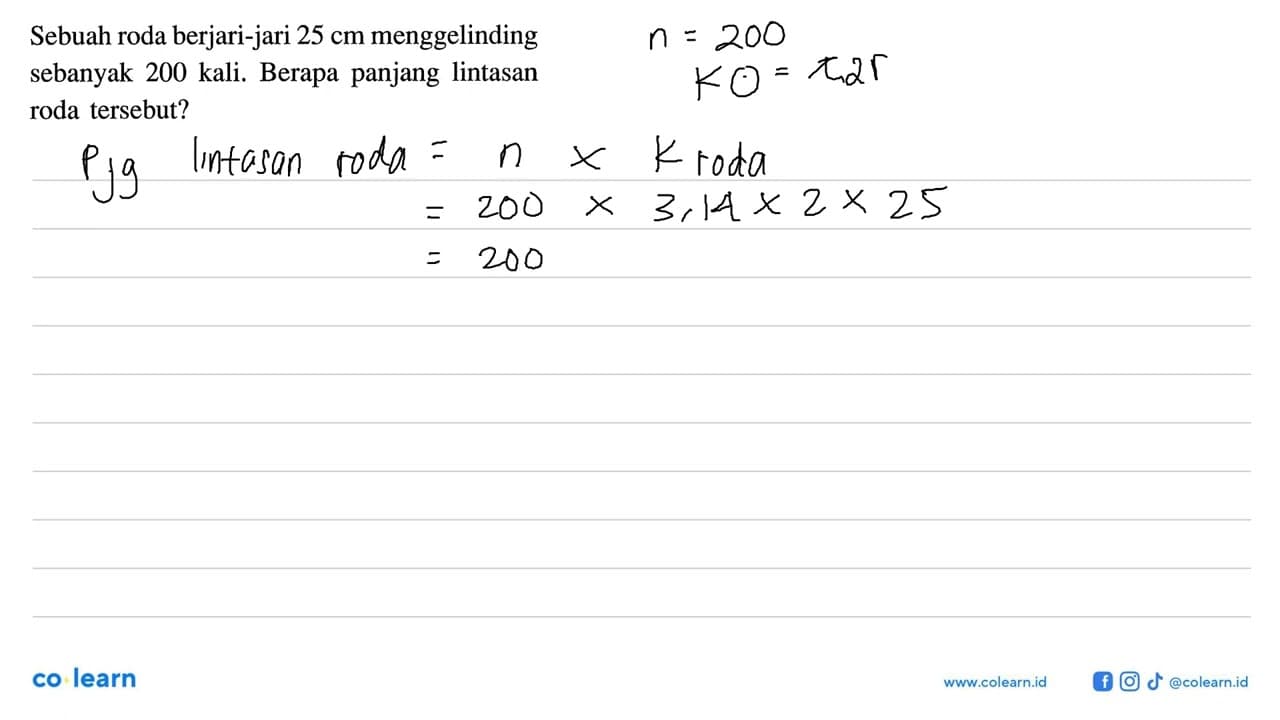 Sebuah roda berjari-jari 25 cm menggelinding
sebanyak 200 kali. Berapa panjang lintasan
roda tersebut?
n = 200
K⊙ = π.2r
Pjg lintasan roda = n × K roda
= 200 × 3,14 × 2 × 25
= 200
co learn
www.colearn.id
@colearn.id